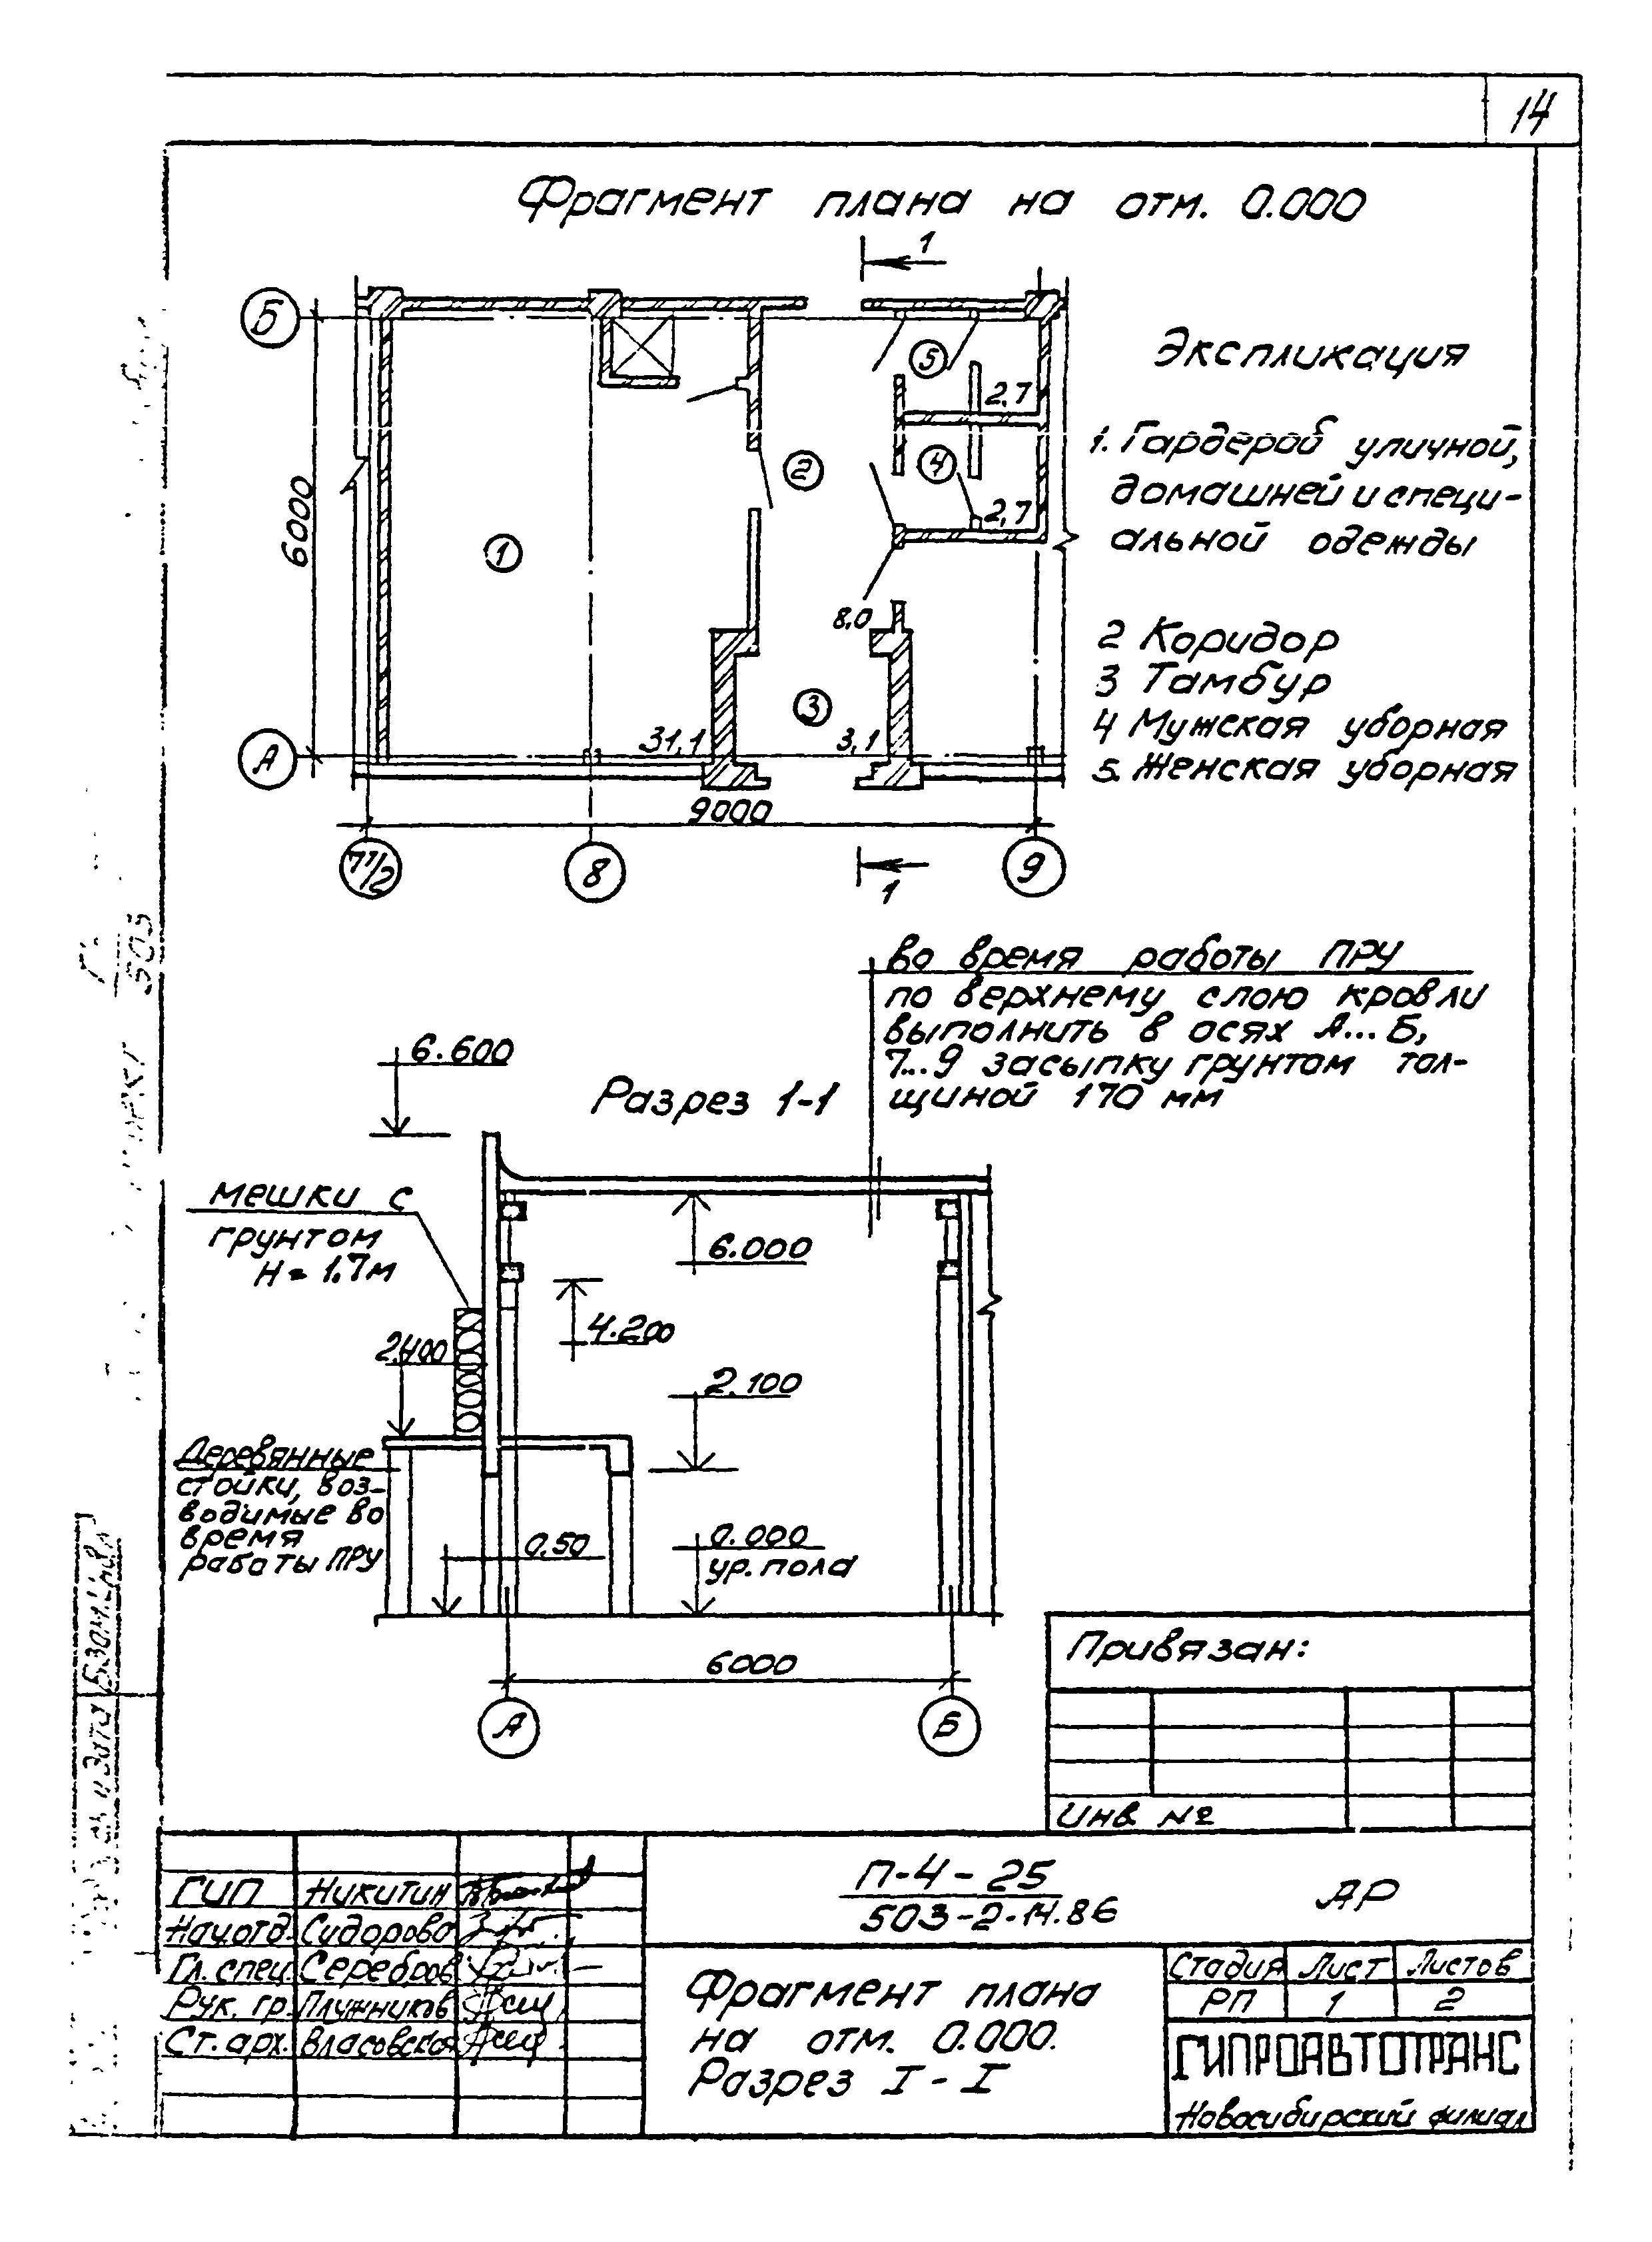 14
Фрагмент плана на отм. 0.000
1
Б
5
Экспликация
2,7
1. Гардероб уличной,
домашней и специ-
альной одежды
2
4
6000
2,7
1
8,0
2 Коридор
3 Тамбур
3
4 Мужская уборная
31,1
3,1
А
5. Женская уборная
9000
7 1/2
8
9
1
во время работы ПРУ
по верхнему слою кровли
выполнить в осях А...Б,
7...9 засыпку грунтом тол-
щиной 170 мм
6.600
Разрез 1-1
мешки с
грунтом
Н = 1.7м
6.000
4.200
2.400
2.100
Деревянные
стойки, воз-
водимые во
время
работы ПРУ
0.50
0.000
ур. пола
6000
А
Б
Привязан:
Инв №
503
и дата
Взам. инв.
П-4-25
503-2-14.86
АР
ГИП Никитин
Нач.отд. Сидорова
Гл. спец. Серебров
Рук. гр. Плужников
Ст. арх. Власовская
Фрагмент плана
на отм. 0.000.
Разрез I-I
Стадия Лист Листов
РП 1 2
ГИПРОАВТОТРАНС
Новосибирский филиал